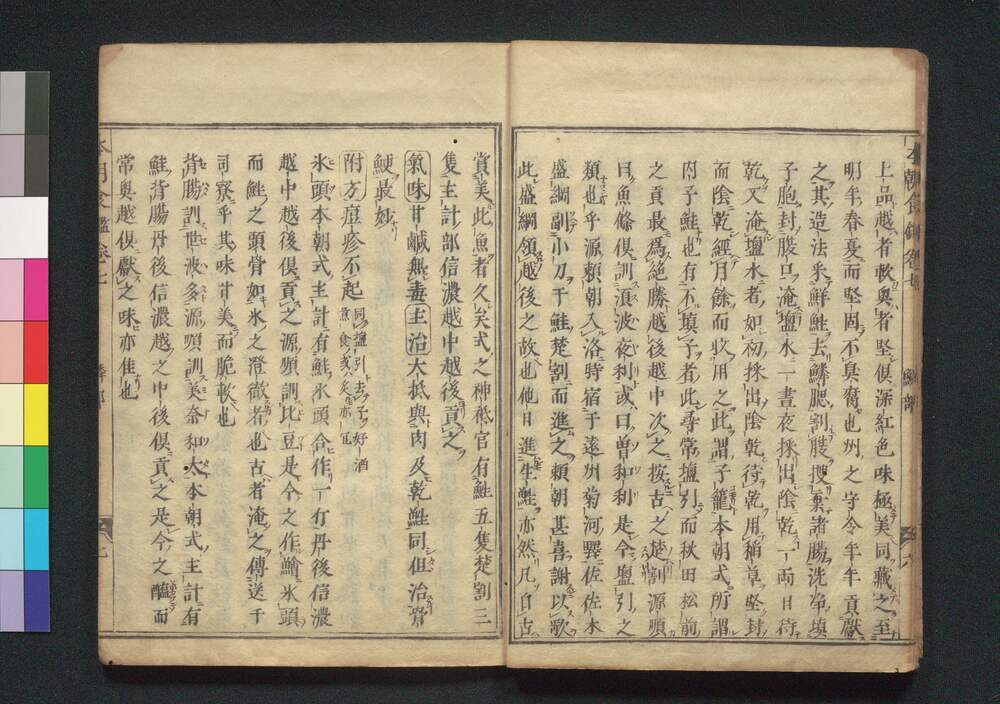 上品越者軟奧者堅俱深紅色味極美同藏之至
明年春夏而堅固不臭腐也州之守令年年貢獻
之其造法采鮮鮭去鱗腮割腹搜棄諸腸洗淨填
子胞封腹口淹鹽水一晝夜採出陰乾一兩日待
乾又淹鹽水者如初採出陰乾待乾用稻草堅封
而陰乾經月餘而收用之此謂子籠本朝式所謂
內子鮭也有不填子者此尋常鹽引而秋田松前
之貢最爲絕勝越後越中次之按古之楚割源順
曰魚條俱訓須波夜利或曰曾和利是今鹽引之
類也乎源賴朝入洛時宿于遠州菊河驛佐佐木
盛綱副小刀于鮭楚割而進之賴朝甚喜謝以歌
此盛綱領越後之故也他日進生鮭亦然凡自古
賞美此魚者久矣式之神祇官有鮭五隻楚割三
隻主計部信濃越中越後貢之
氣味甘鹹無毒主治大抵與肉及乾鮭同但治骨
鯁最妙
附方痘疹不起同鹽引去子好酒煮食或炙亦可
氷頭本朝式主計有鮭氷頭合作丁有丹後信濃
越中越後俱貢之源順訓比豆是今之作鱠氷頭
而鮭之頭骨如氷之澄徹者也古者淹之傳送于
司寮乎其味甘美而脆軟也
背腸訓世波多源順訓美奈和太本朝式主計有
鮭背腸丹後信濃越之中後俱貢之是今之醢而
常奧越俱獻之味亦佳也
本朝食鑑卷七 鱗部